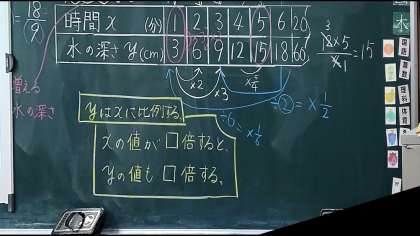 時間x (分) 1 2 3 4 5 6 20
水の深さy(cm) 3 6 9 12 15 18 60
=18/(9)
×2 ×3 ×5/4
12×5/4×1=15
÷2=×1/2
÷6=×1/6
増える
水の深さ
yはxに比例する。
xの値が□倍すると、
yの値も□倍する。
水
国語
算数
理科
体育